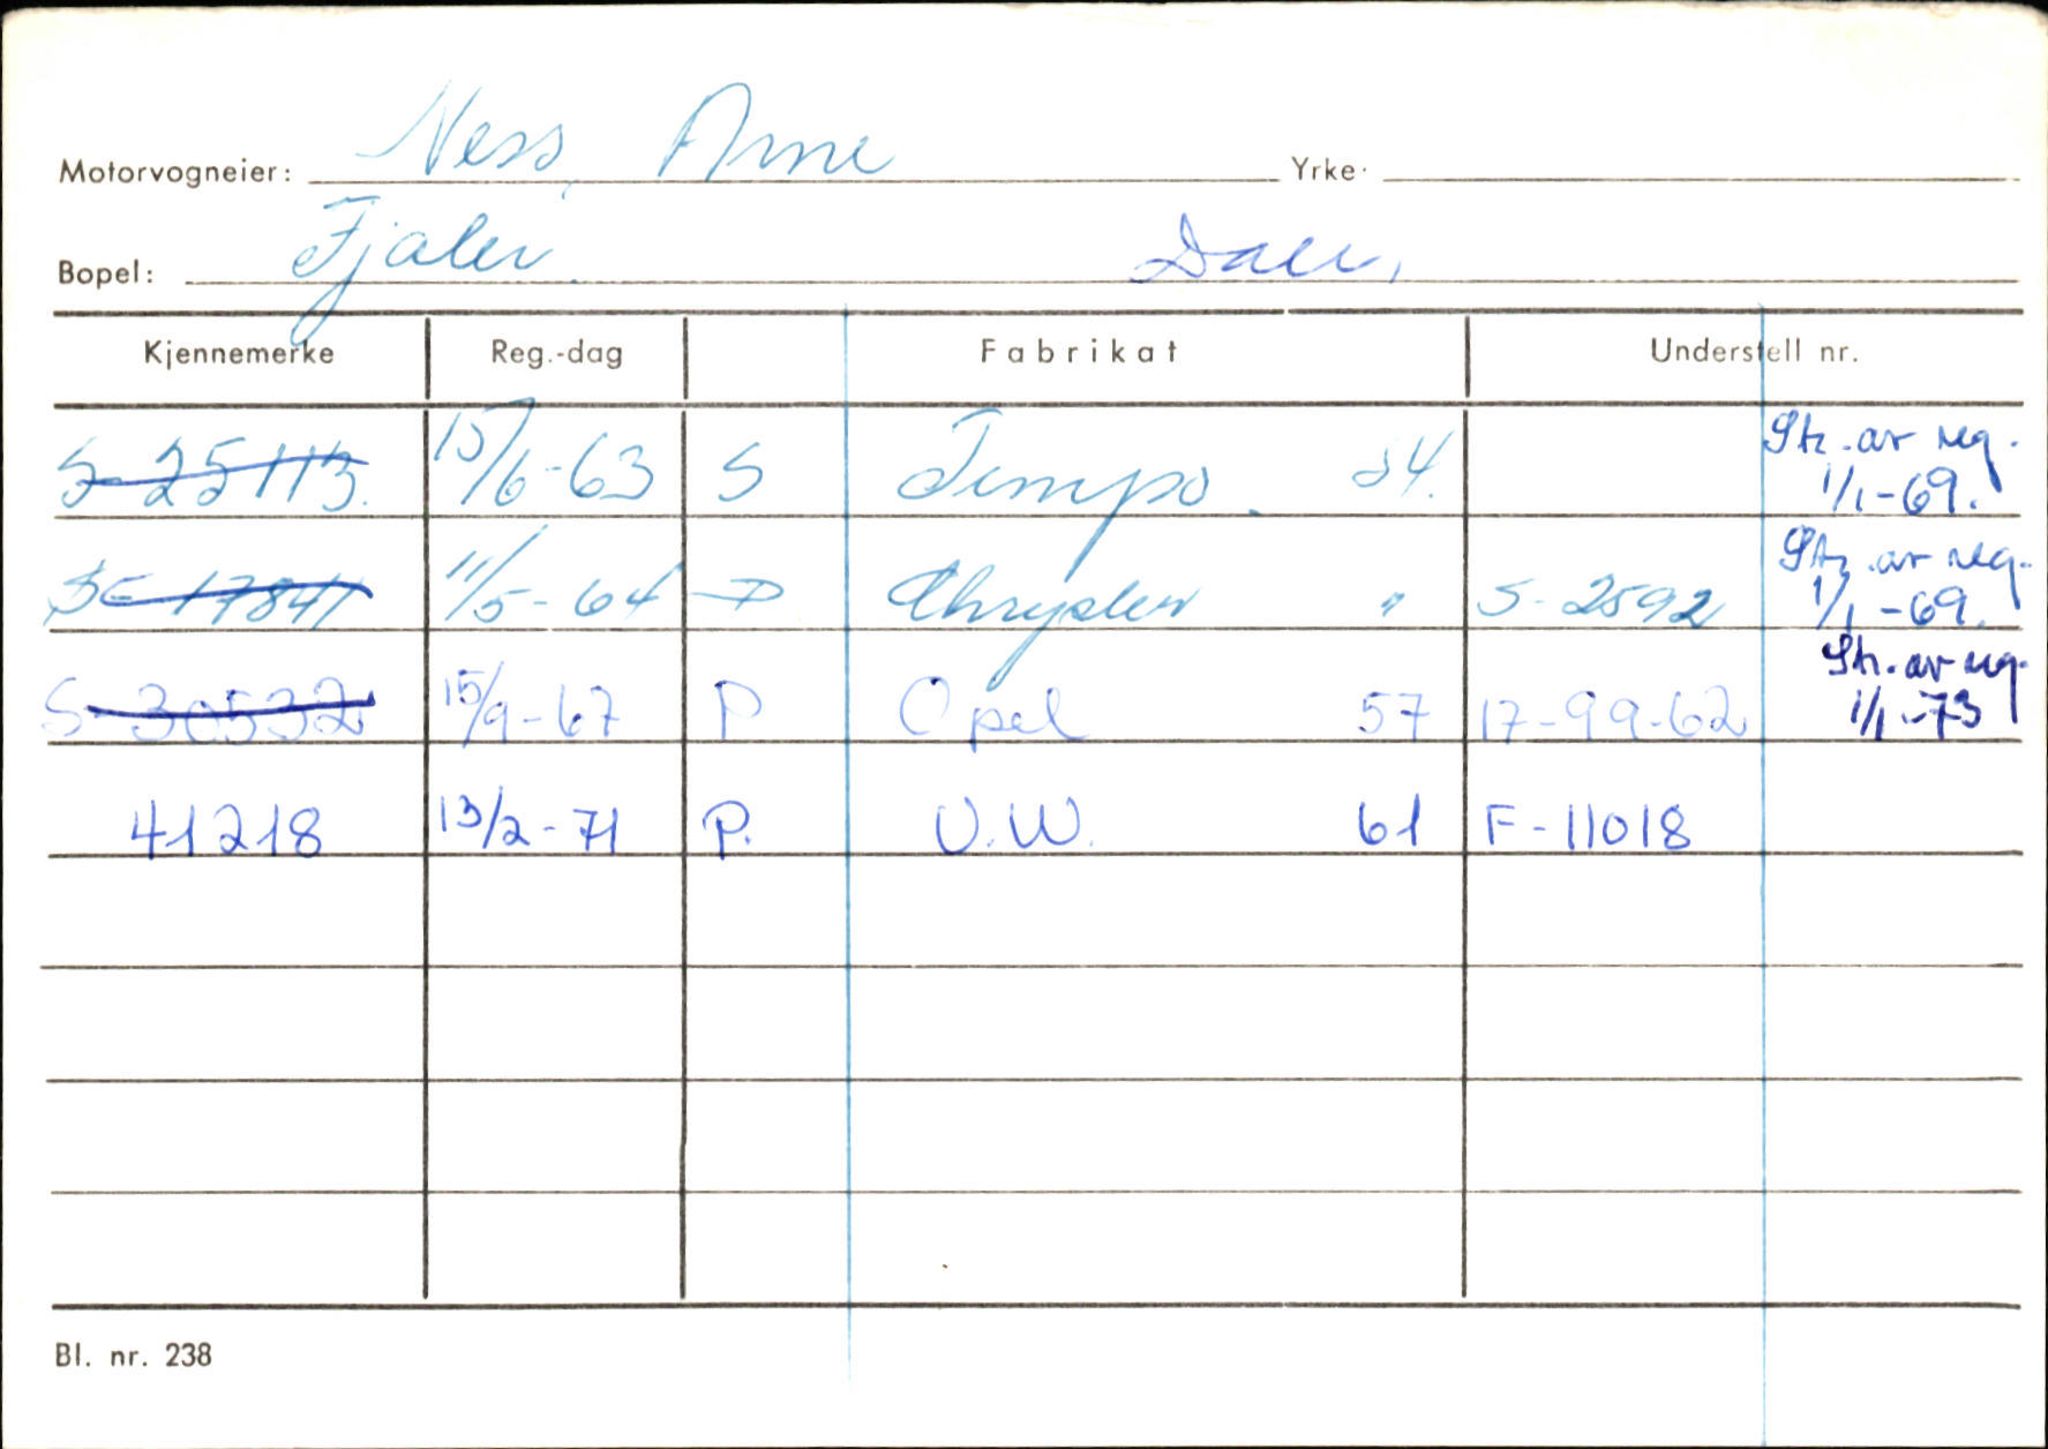 Motorvogneier: Ness, Arne Yrke.
Bopel: Fjaler. Dale,
Kjennemerke Reg.-dag Fabrikat Understell nr.
S-25113. 15/6-63 S Tempo. 54. Str. av reg. 1/1-69.
S-17841 11/5-64 P Chrysler " S-2592 Str. av reg. 1/1-69.
S-30532 15/9-67 P Opel 57 17-99-62 Str. av reg. 1/1-73
41218 13/2-71 P. V.W. 61 F-11018
Bl. nr. 238